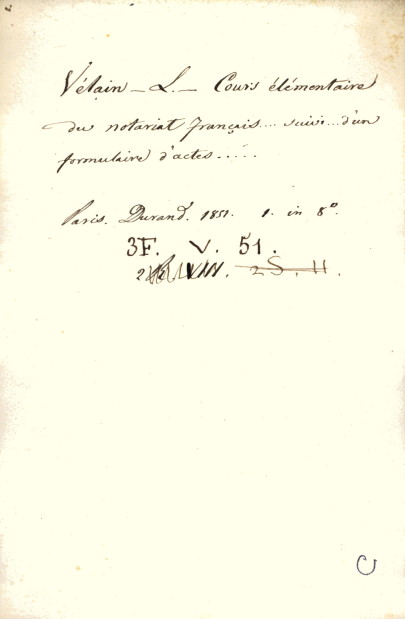 Vélain _ L. _ Cours élémentaire
du notariat français.... suivi... d'un
formulaire d'actes.....
Paris. Durand. 1851. 1. in 8º.
3F. V. 51.
2 VIII. 2S. 11.
C